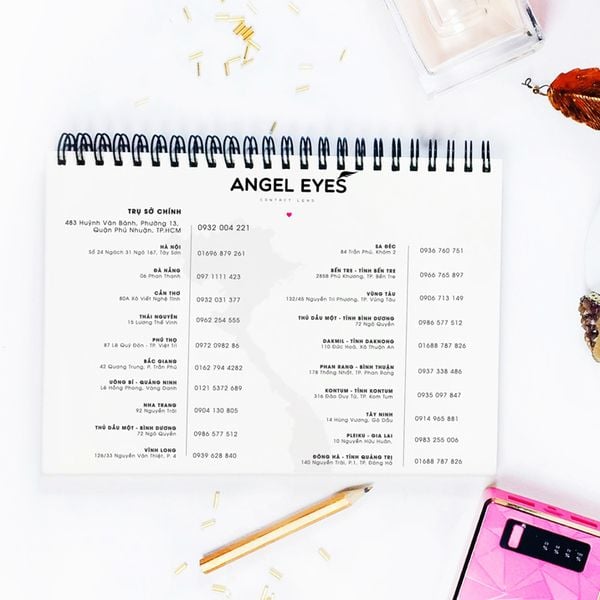 ANGEL EYES
CONTACT LENS
TRỤ SỞ CHÍNH
483 Huỳnh Văn Bánh, Phường 13,
Quận Phú Nhuận, TP.HCM
0932 004 221
HÀ NỘI
Số 24 Ngách 31 Ngõ 167, Tây Sơn
01696 879 261
ĐÀ NẴNG
06 Phan Thanh
097 1111 423
CẦN THƠ
80A Xô Viết Nghệ Tĩnh
0932 031 377
THÁI NGUYÊN
15 Lương Thế Vinh
0962 254 555
PHÚ THỌ
87 Lê Quý Đôn - TP. Việt Trì
0972 0982 86
BẮC GIANG
42 Quang Trung, P. Trần Phú
0162 794 4282
UÔNG BÍ - QUẢNG NINH
Lê Hồng Phong, Vàng Danh
0121 5372 689
NHA TRANG
92 Nguyễn Trãi
0904 130 805
THỦ DẦU MỘT - BÌNH DƯƠNG
72 Ngô Quyền
0986 577 512
VĨNH LONG
126/33 Nguyễn Văn Thiệt, P. 4
0939 628 840
SA ĐÉC
84 Trần Phú, Khóm 2
0936 760 751
BẾN TRE - TỈNH BẾN TRE
285B Phú Khương, TP. Bến Tre
0966 765 897
VŨNG TÀU
132/45 Nguyễn Tri Phương, TP. Vũng Tàu
0906 713 149
THỦ DẦU MỘT - TỈNH BÌNH DƯƠNG
72 Ngô Quyền
0986 577 512
DAKMIL - TỈNH DAKNONG
110 Đức Hoà, Xã Thuận An
01688 787 826
PHAN RANG - BÌNH THUẬN
178 Thống Nhất, TP. Phan Rang
0937 338 486
KONTUM - TỈNH KONTUM
316 Đào Duy Từ, TP. Kom Tum
0935 097 847
TÂY NINH
14 Hùng Vương, Gò Dầu
0914 965 881
PLEIKU - GIA LAI
10 Nguyễn Hữu Huân,
0983 255 006
ĐÔNG HÀ - TỈNH QUẢNG TRỊ
140 Nguyễn Trãi, P.1, TP. Đông Hà
01688 787 826